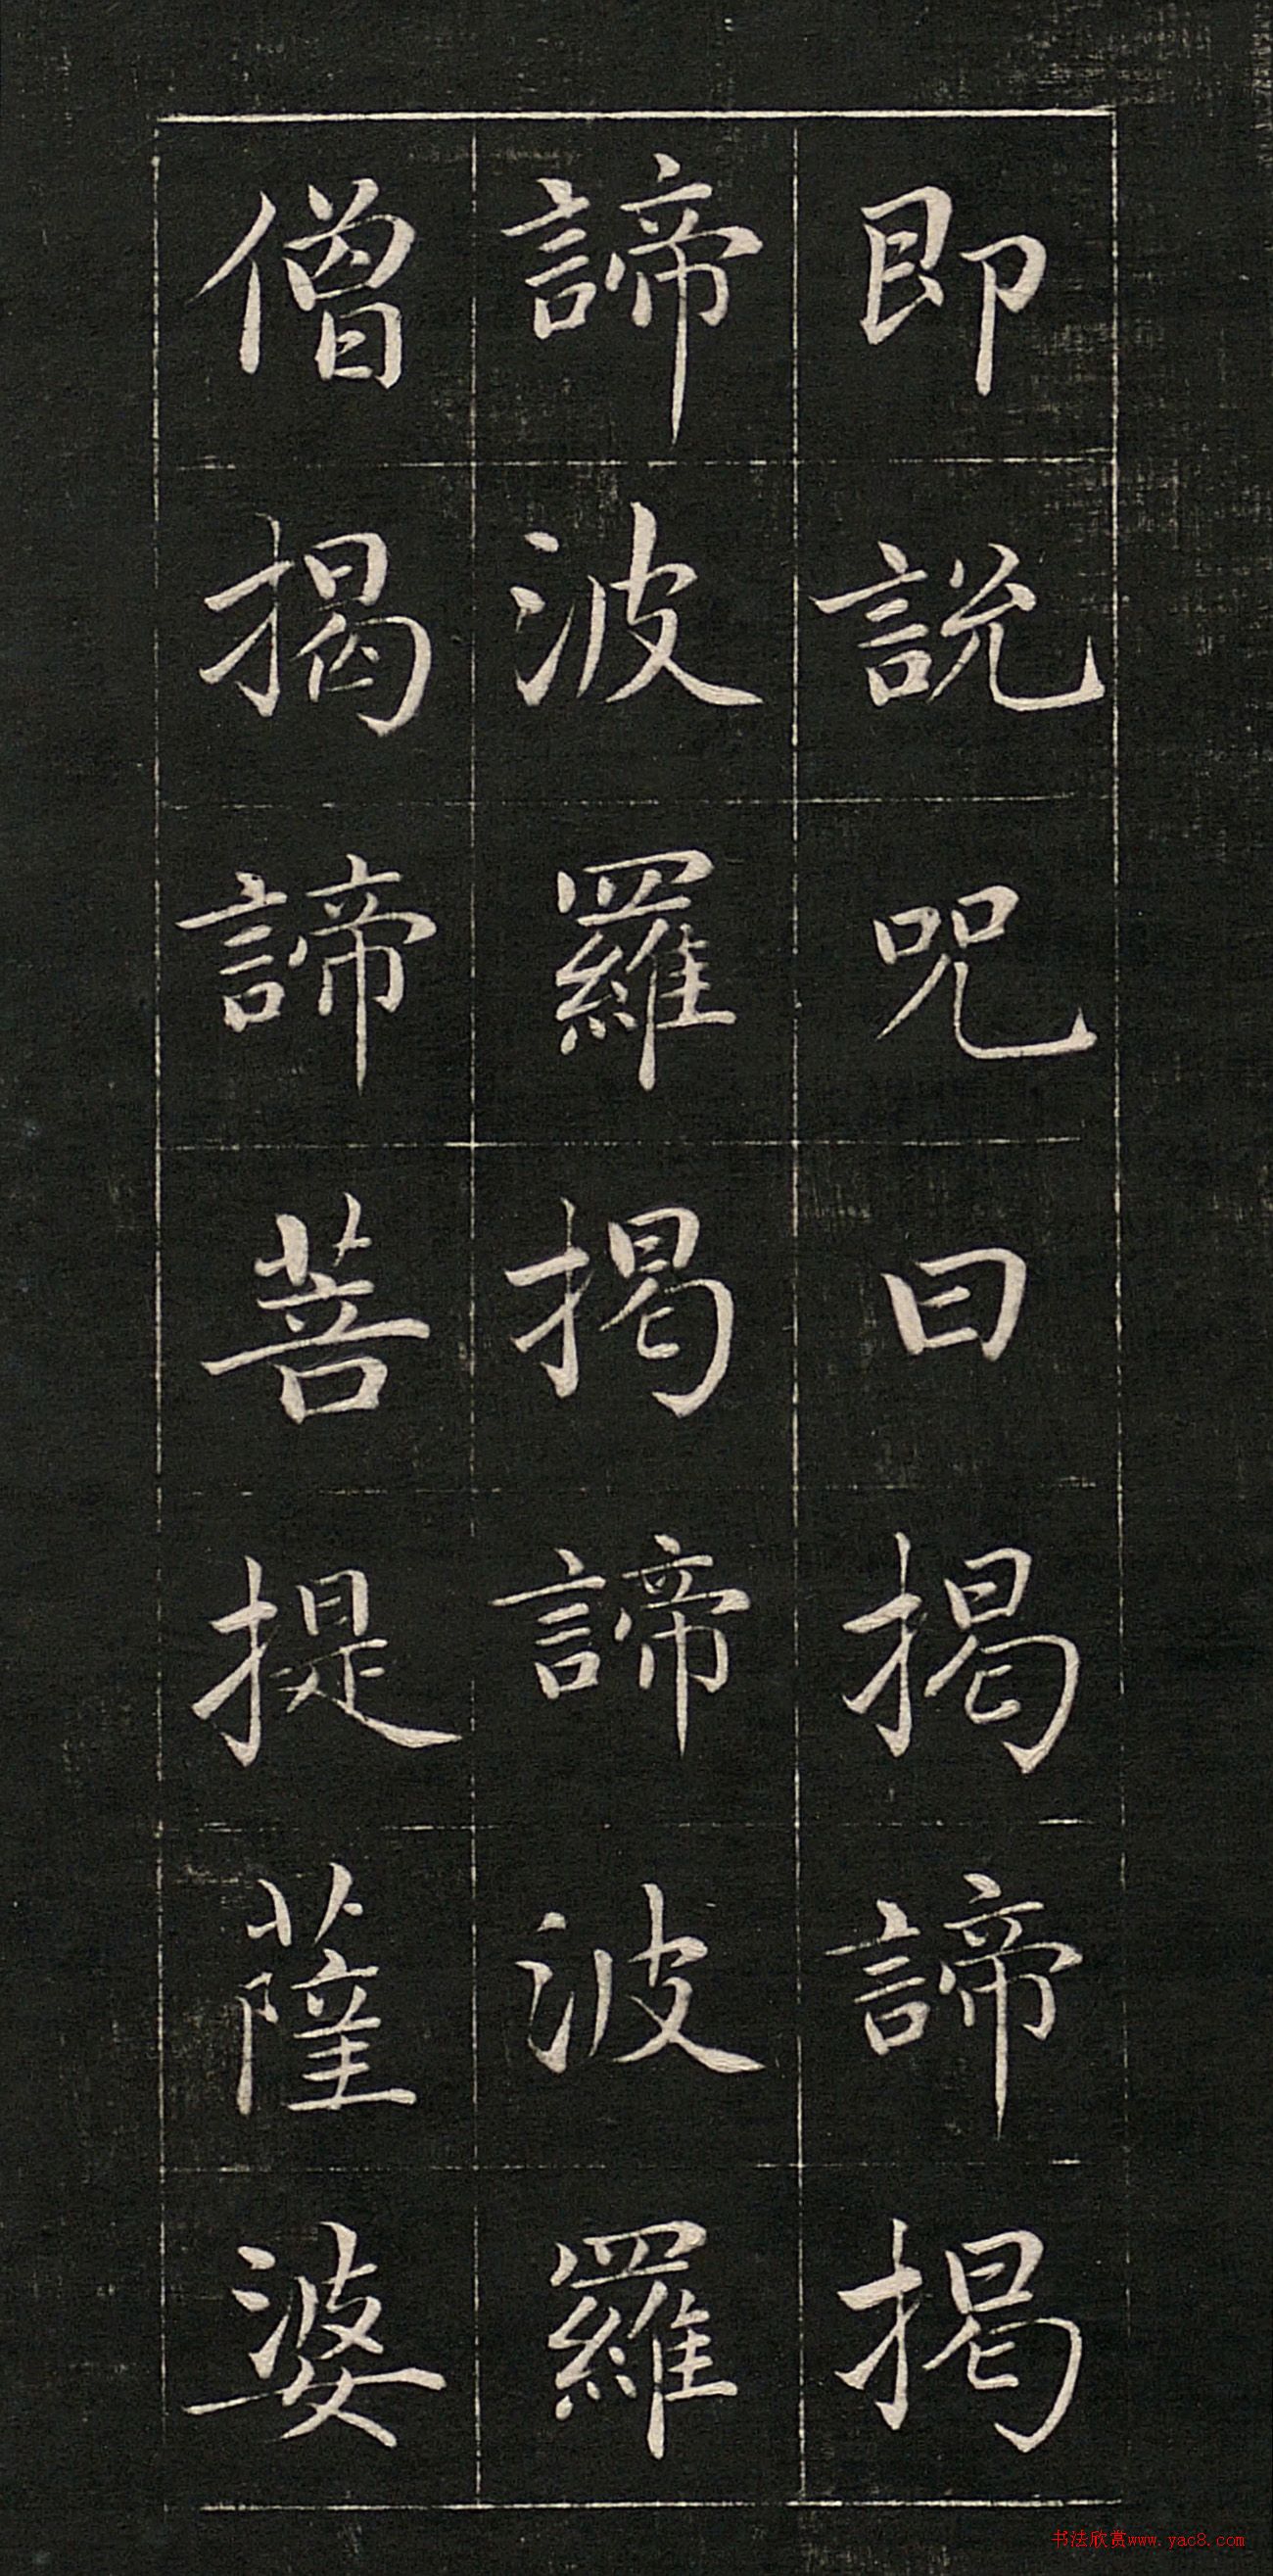 即說咒曰揭諦揭
諦波羅揭諦波羅
僧揭諦菩提薩婆
书法欣赏www.yac8.com